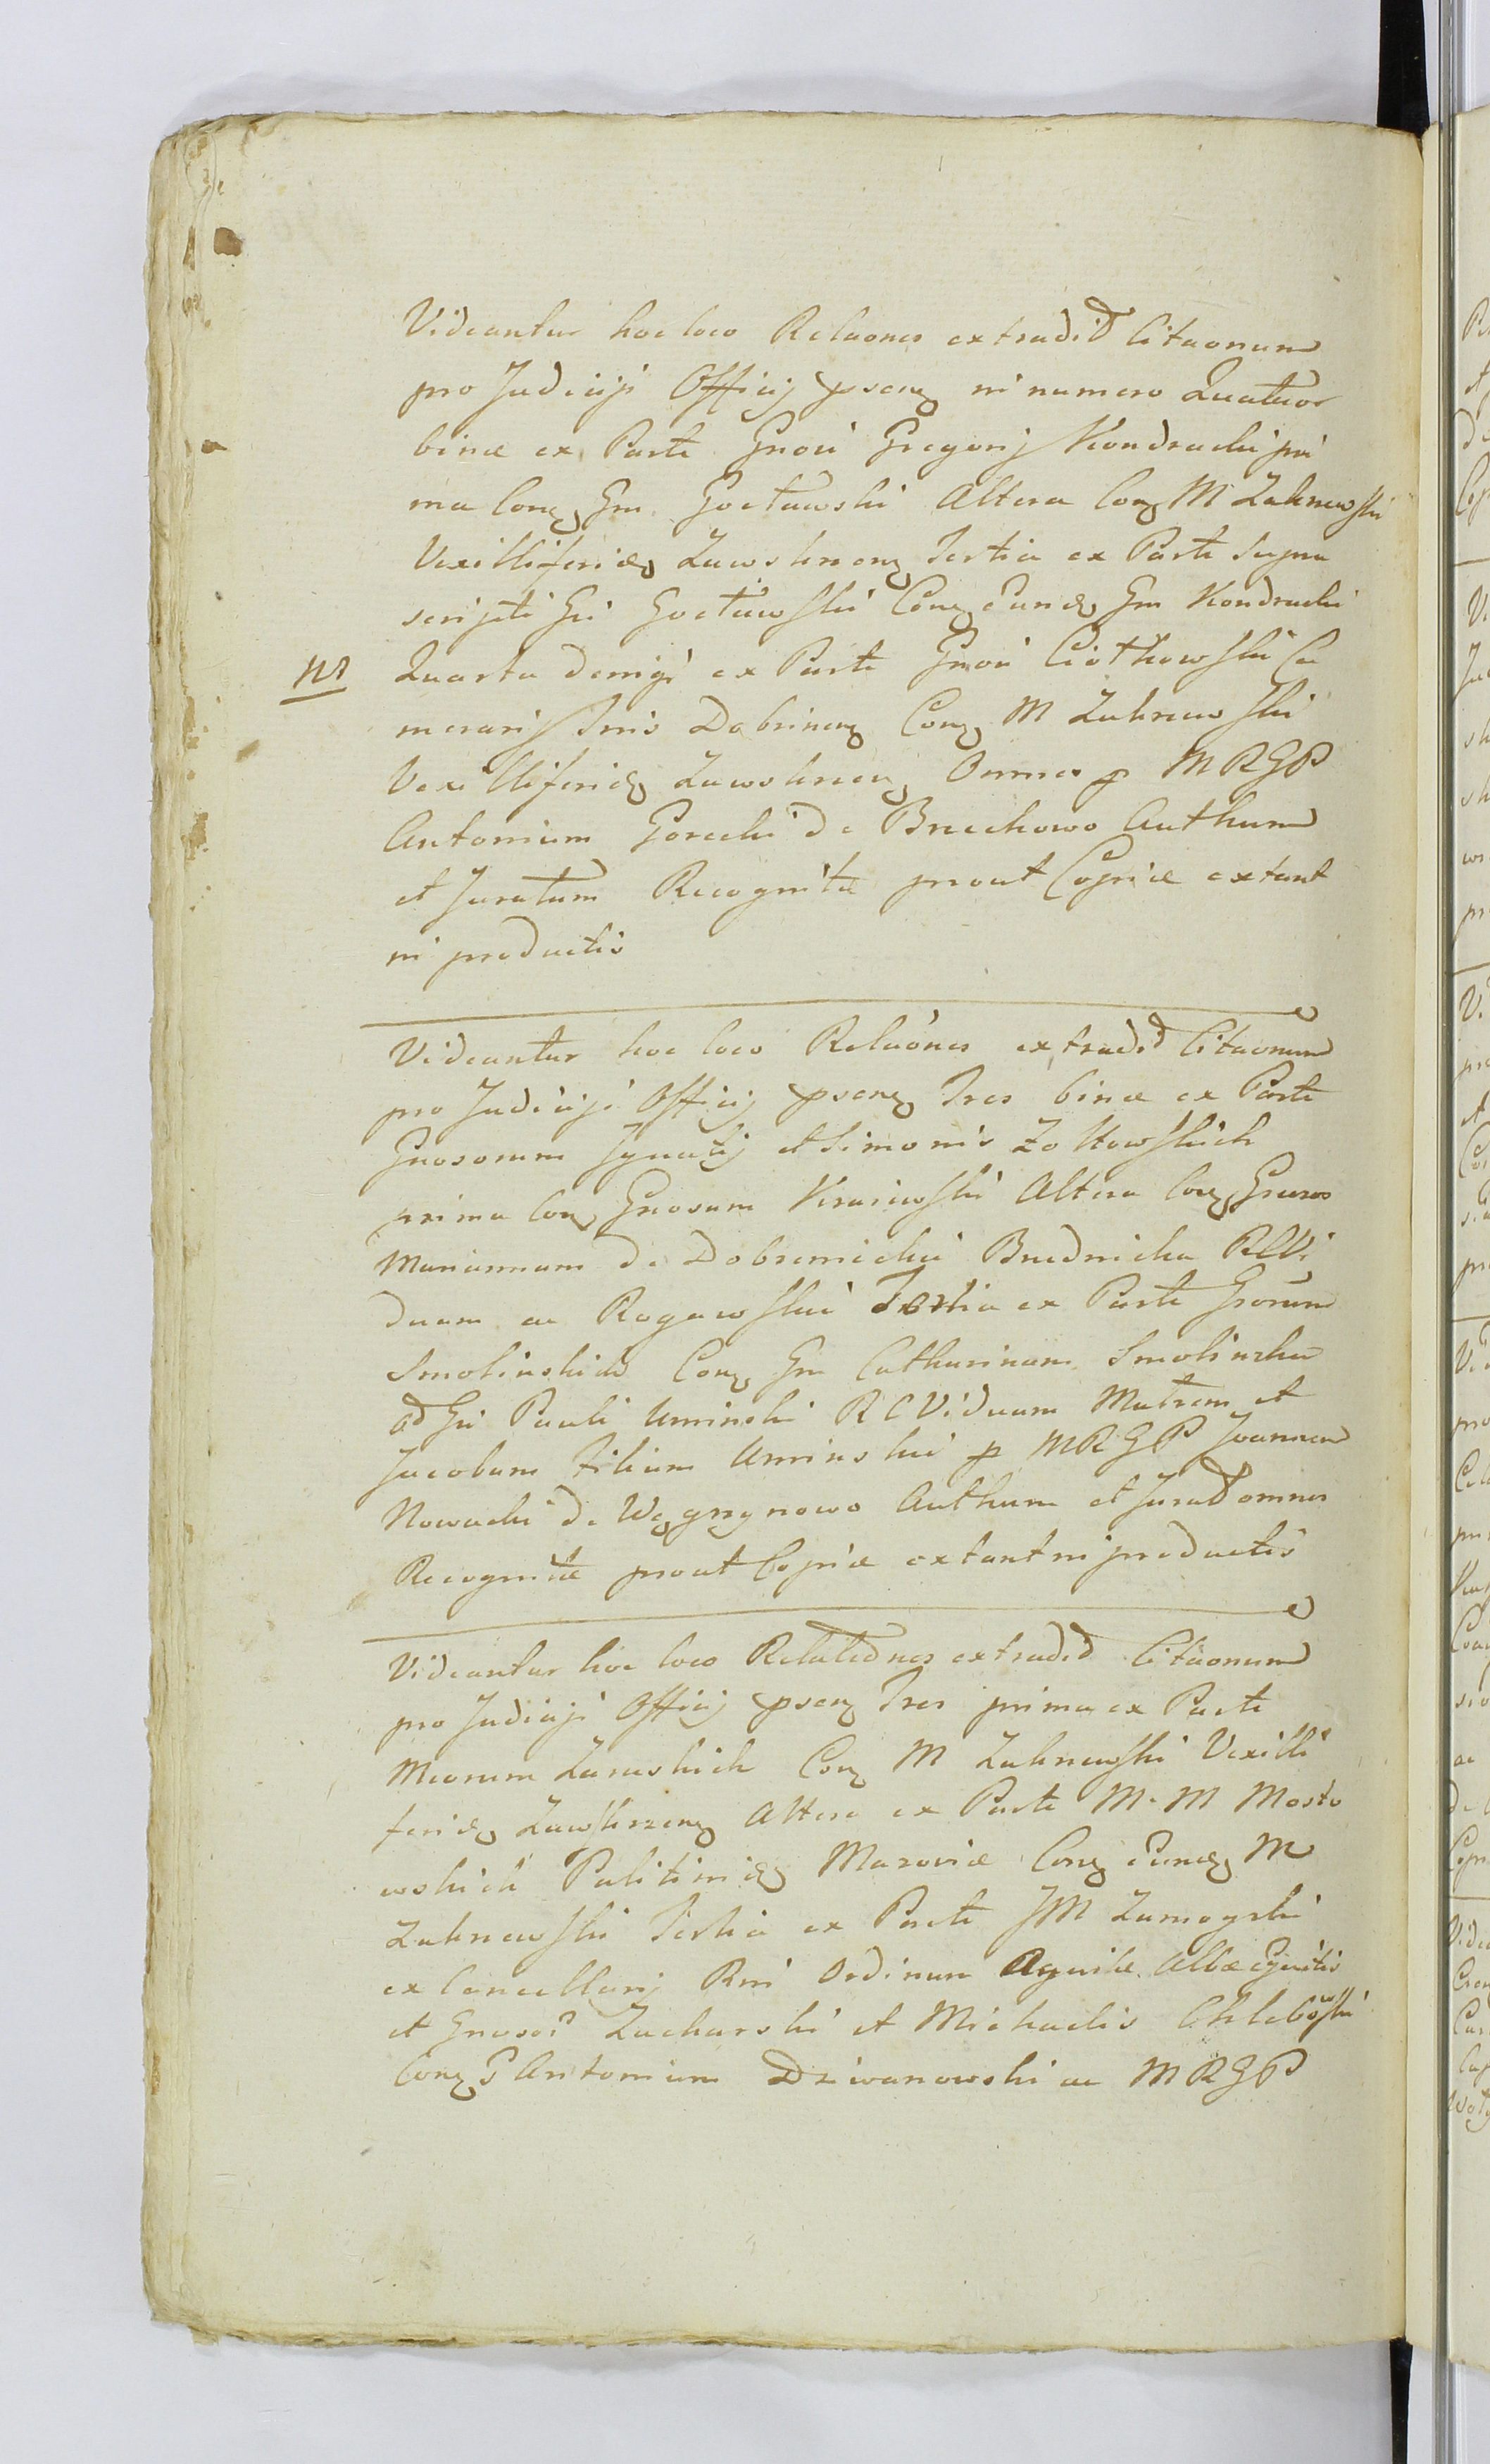 Videantur hoc loco Relaones extradit Citaonum
pro Judiciji Officij psenq in numero Quatuor
binæ ex Parte Gnosi Gregorij Kondracki pri
ma Conq Gm Goctawski Altera Conq M Zakrzewski
Vexilliferidq Zawskrzenq Tertia ex Parte supra
scripti Gi Goctawski Conq Eundq Gm Kondracki
NB Quarta deniqi ex Parte Gnosi Ciotkowski Ca
merarij Tnis Dobrinenq Conq M Zakrzewski
Vexilliferidq Zawskrzenq Omnes p MRGP
Antonium Gorecki de Brzechowo Authum
et Juratum Recognitæ prout Copiæ extant
in productis
Videantur hoc loco Relaones extradit Citaonum
pro Judiciji Officij psenq Tres binæ ex Parte
Gnosorum Ignatij et Simonis Zoltowskich
prima Conq Gnosum Krasiewski Altera Conq
Mariannam de Dobrzenicki Brudnicka RCVi
duam ac Rogowski Tertia ex Parte Grorum
Smolinskich Conq Gm Catharinam Smolinska
ad Gi Pauli Uminski RCViduam Matrem et
Jacobum Filium Uminski p MRGP Joannem
Nowacki de Węgrzynowo Authum et Jurat omnes
Recognitæ prout Copiæ extant in productis
Videantur hoc loco Relationes extradit Citaonum
pro Judiciji Officij psenq Tres prima ex Parte
Mcorum Zaruskich Conq M Zakrzewski Vexilli
feridq Zawskrzenq Altera ex Parte M. M Mosto
wskich Palitinidq Mazoviæ Conq Eundq M
Zakrzewski Tertia ex Parte JM Zamoyski
ex Cancellarij Rni Ordinum Aquilæ Albæ Equitis
et Gnosor Zacharski et Michaelis Chlebowski
Conq G Antonium Dziwanowski ac MRGP